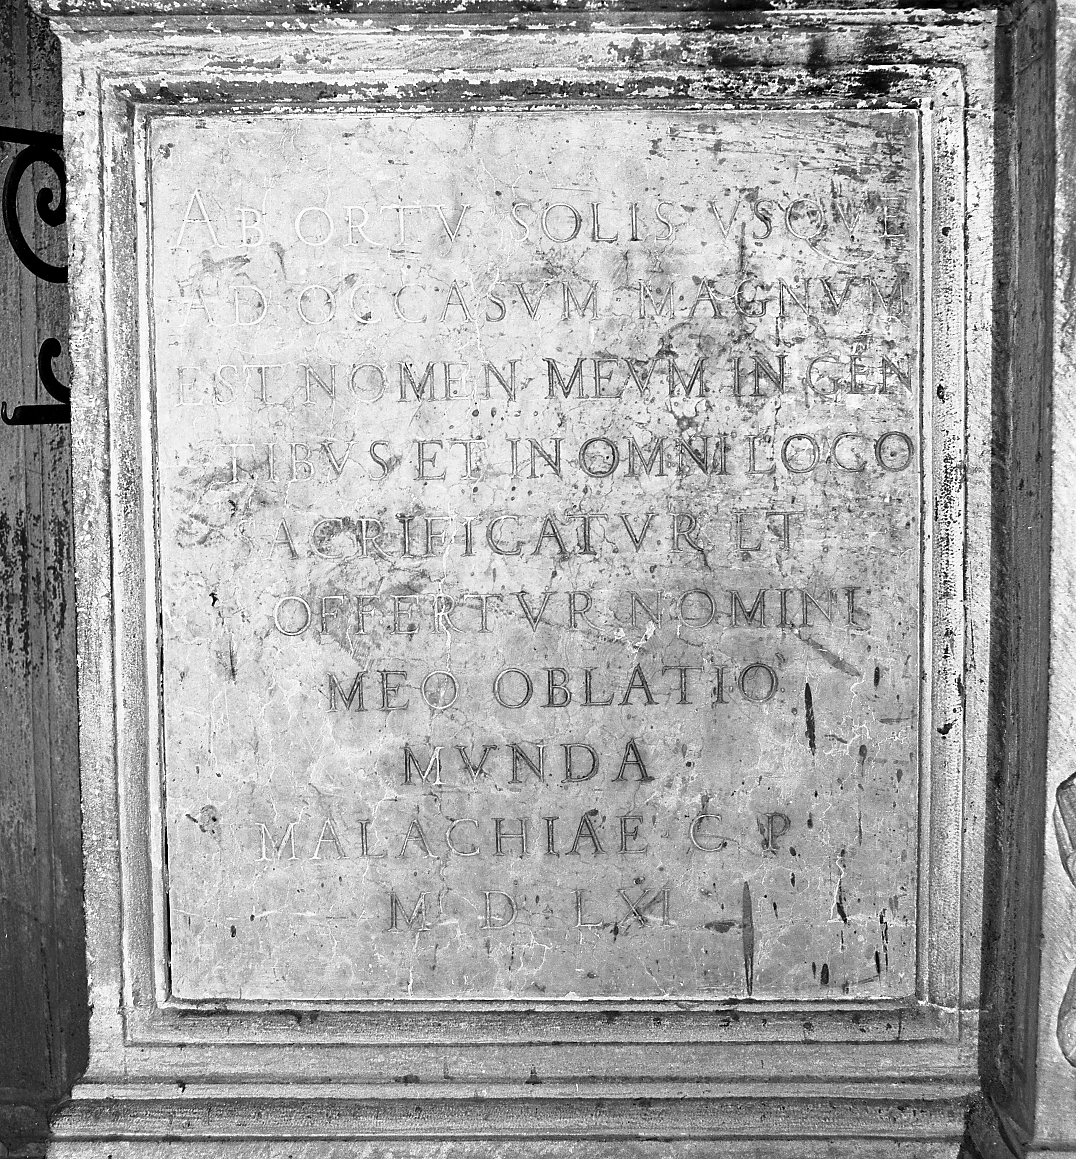 AB ORTV SOLIS VSQVE
AD OCCASVM MAGNVM
EST NOMEN MEVM IN GEN
TIBVS ET IN OMNI LOCO
SACRIFICATVR ET
OFFERTVR NOMINI
MEO OBLATIO
MVNDA
MALACHIAE C P
M D LXI